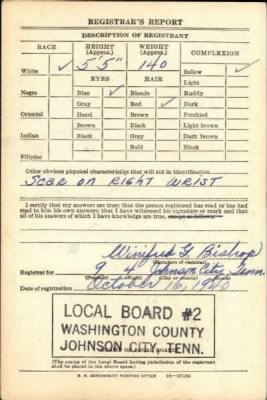 REGISTRAR'S REPORT
DESCRIPTION OF REGISTRANT
RACE HEIGHT (Approx.) WEIGHT (Approx.) COMPLEXION
White ✓ 5'5" 140 Sallow ✓
EYES HAIR Light
Negro Blue ✓ Blonde Ruddy
Gray Red ✓ Dark
Oriental Hazel Brown Freckled
Brown Black Light brown
Indian Black Gray Dark brown
Bald Black
Filipino
Other obvious physical characteristics that will aid in identification
SCAR ON RIGHT WRIST
I certify that my answers are true; that the person registered has read or has had
read to him his own answers; that I have witnessed his signature or mark and that
all of his answers of which I have knowledge are true, except as follows:
Winifred G. Bishop
(Signature of registrar)
Registrar for 4 Johnson City, Tenn.
Date of registration October 16, 1940
LOCAL BOARD #2
WASHINGTON COUNTY
JOHNSON CITY, TENN.
(The stamp of the Local Board having jurisdiction of the registrant
shall be placed in the above space.)
U. S. GOVERNMENT PRINTING OFFICE